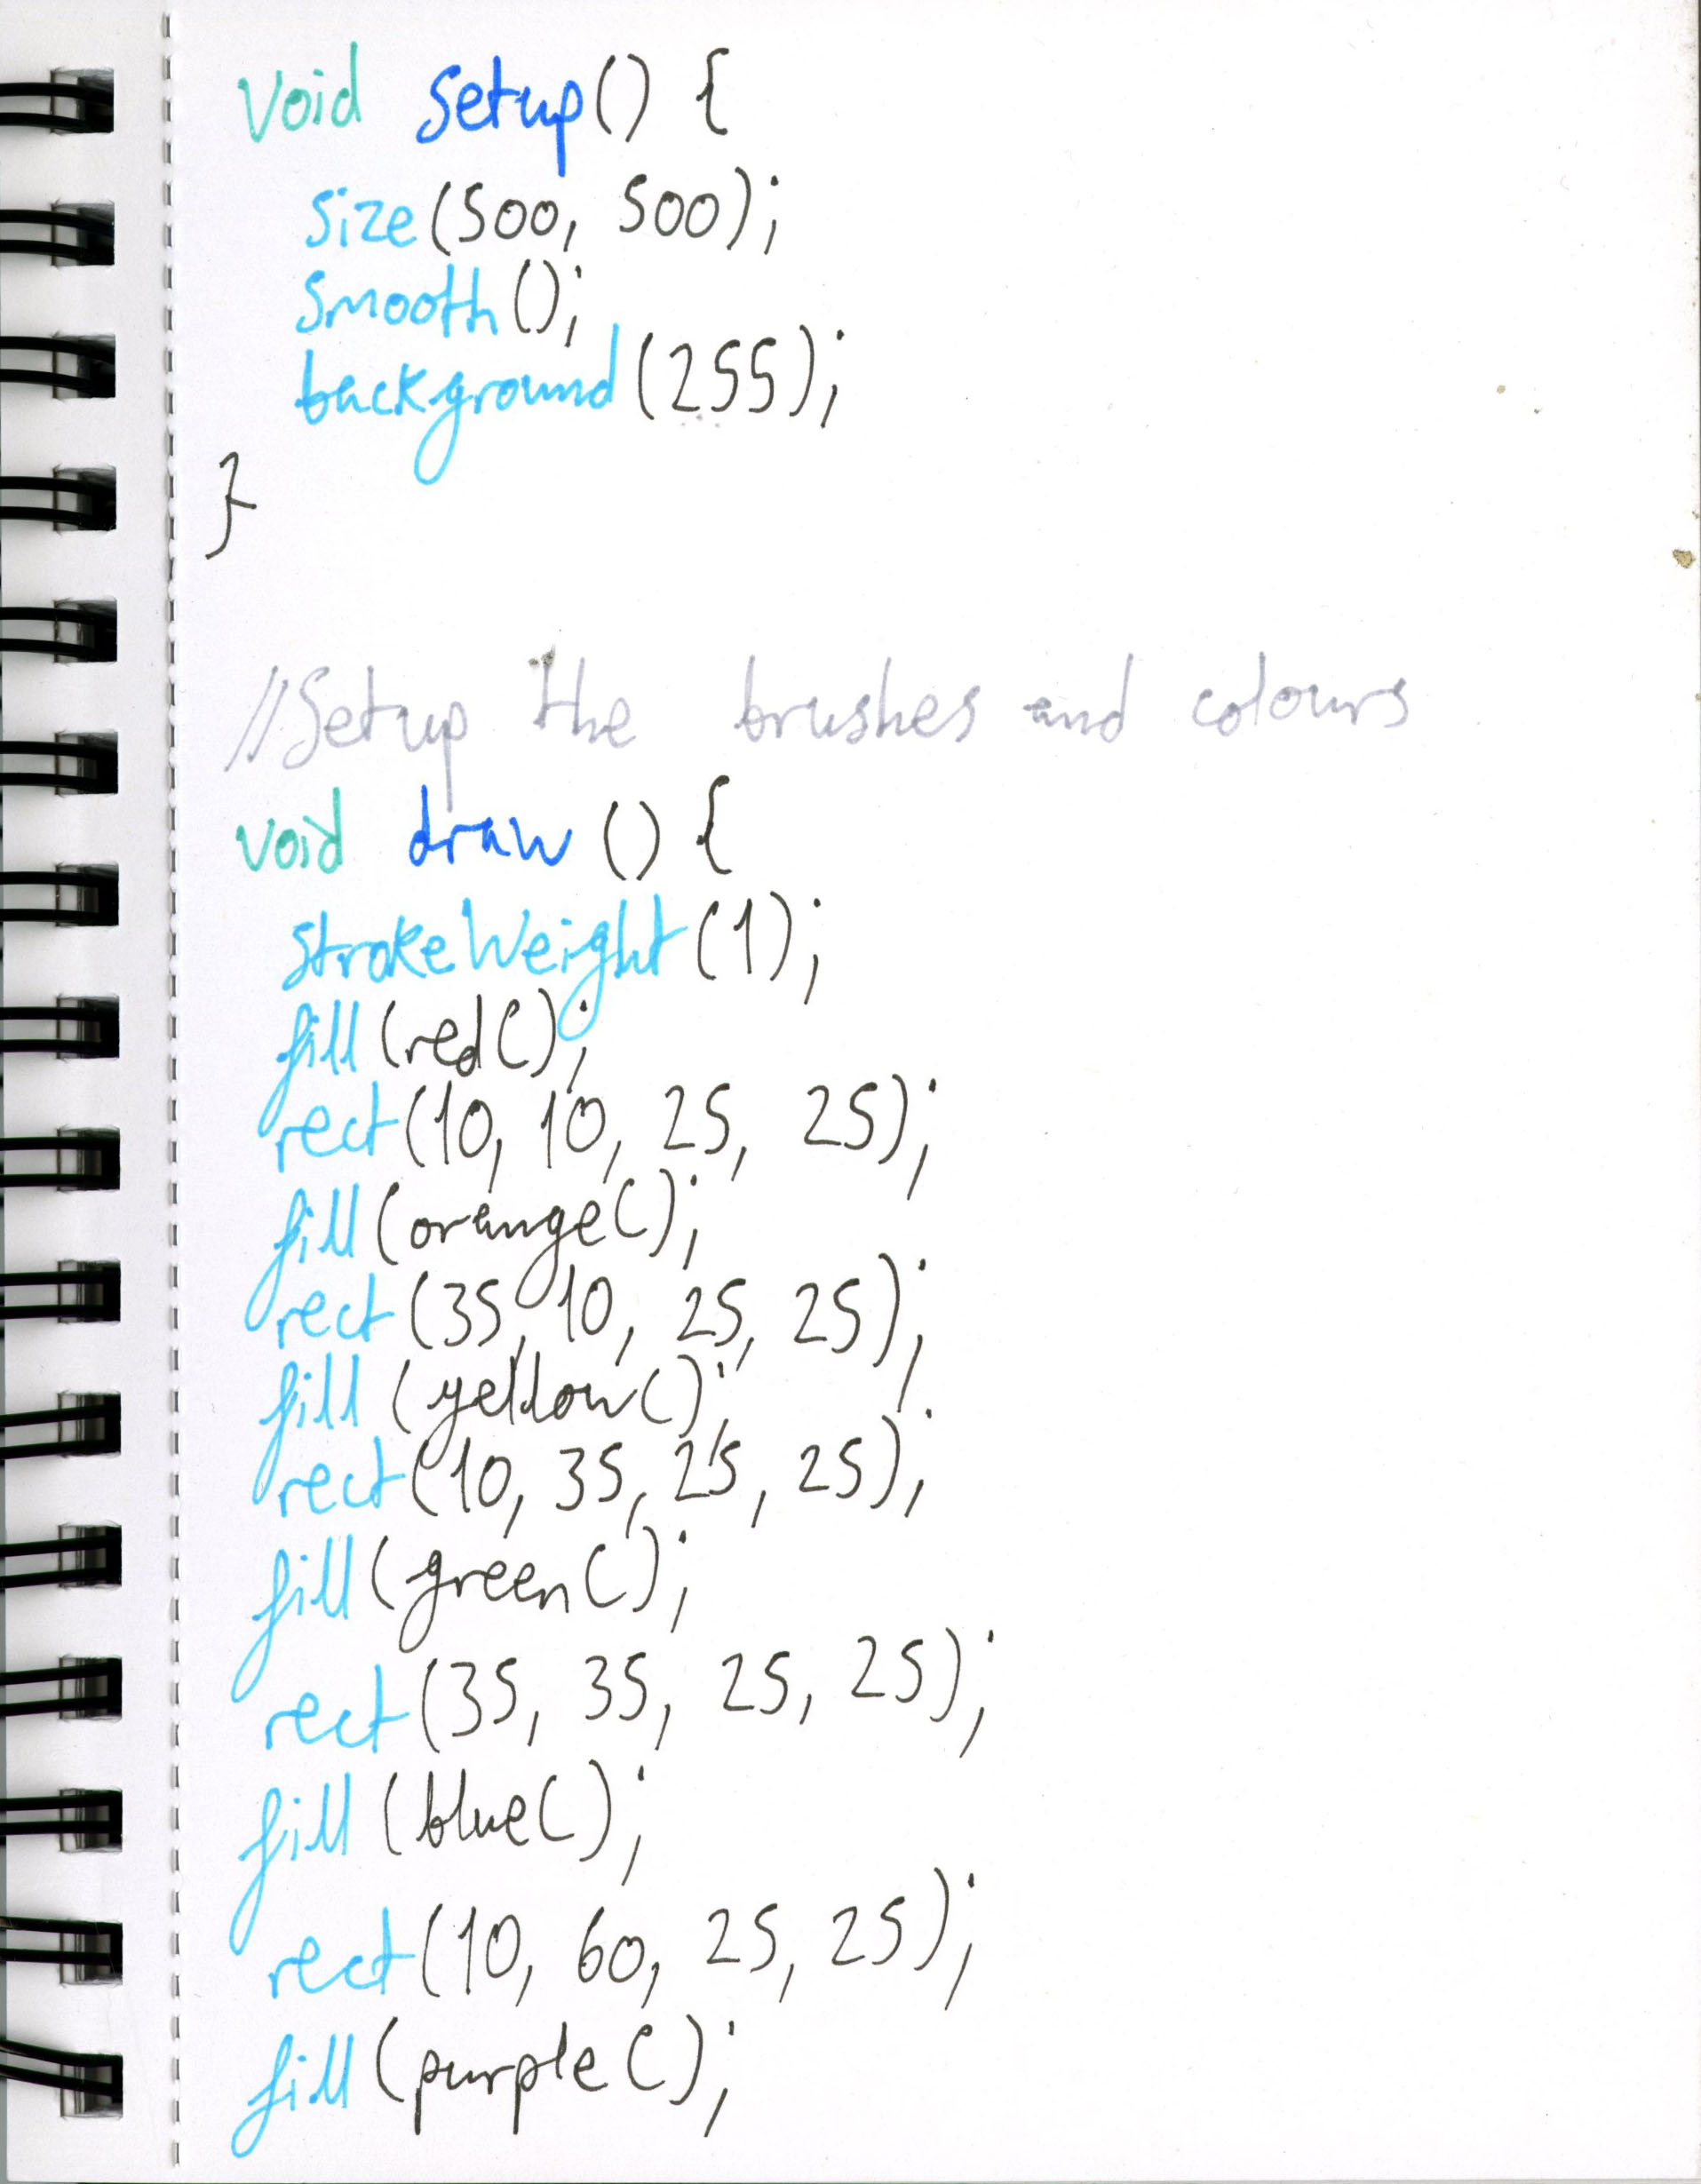 void setup() {
size(500, 500);
smooth();
background(255);
}
//Setup the brushes and colours
void draw () {
strokeWeight(1);
fill(red();
rect(10, 10, 25, 25);
fill(orange();
rect(35, 10, 25, 25);
fill(yellow();
rect(10, 35, 25, 25);
fill(green();
rect(35, 35, 25, 25);
fill(blue();
rect(10, 60, 25, 25);
fill(purple();